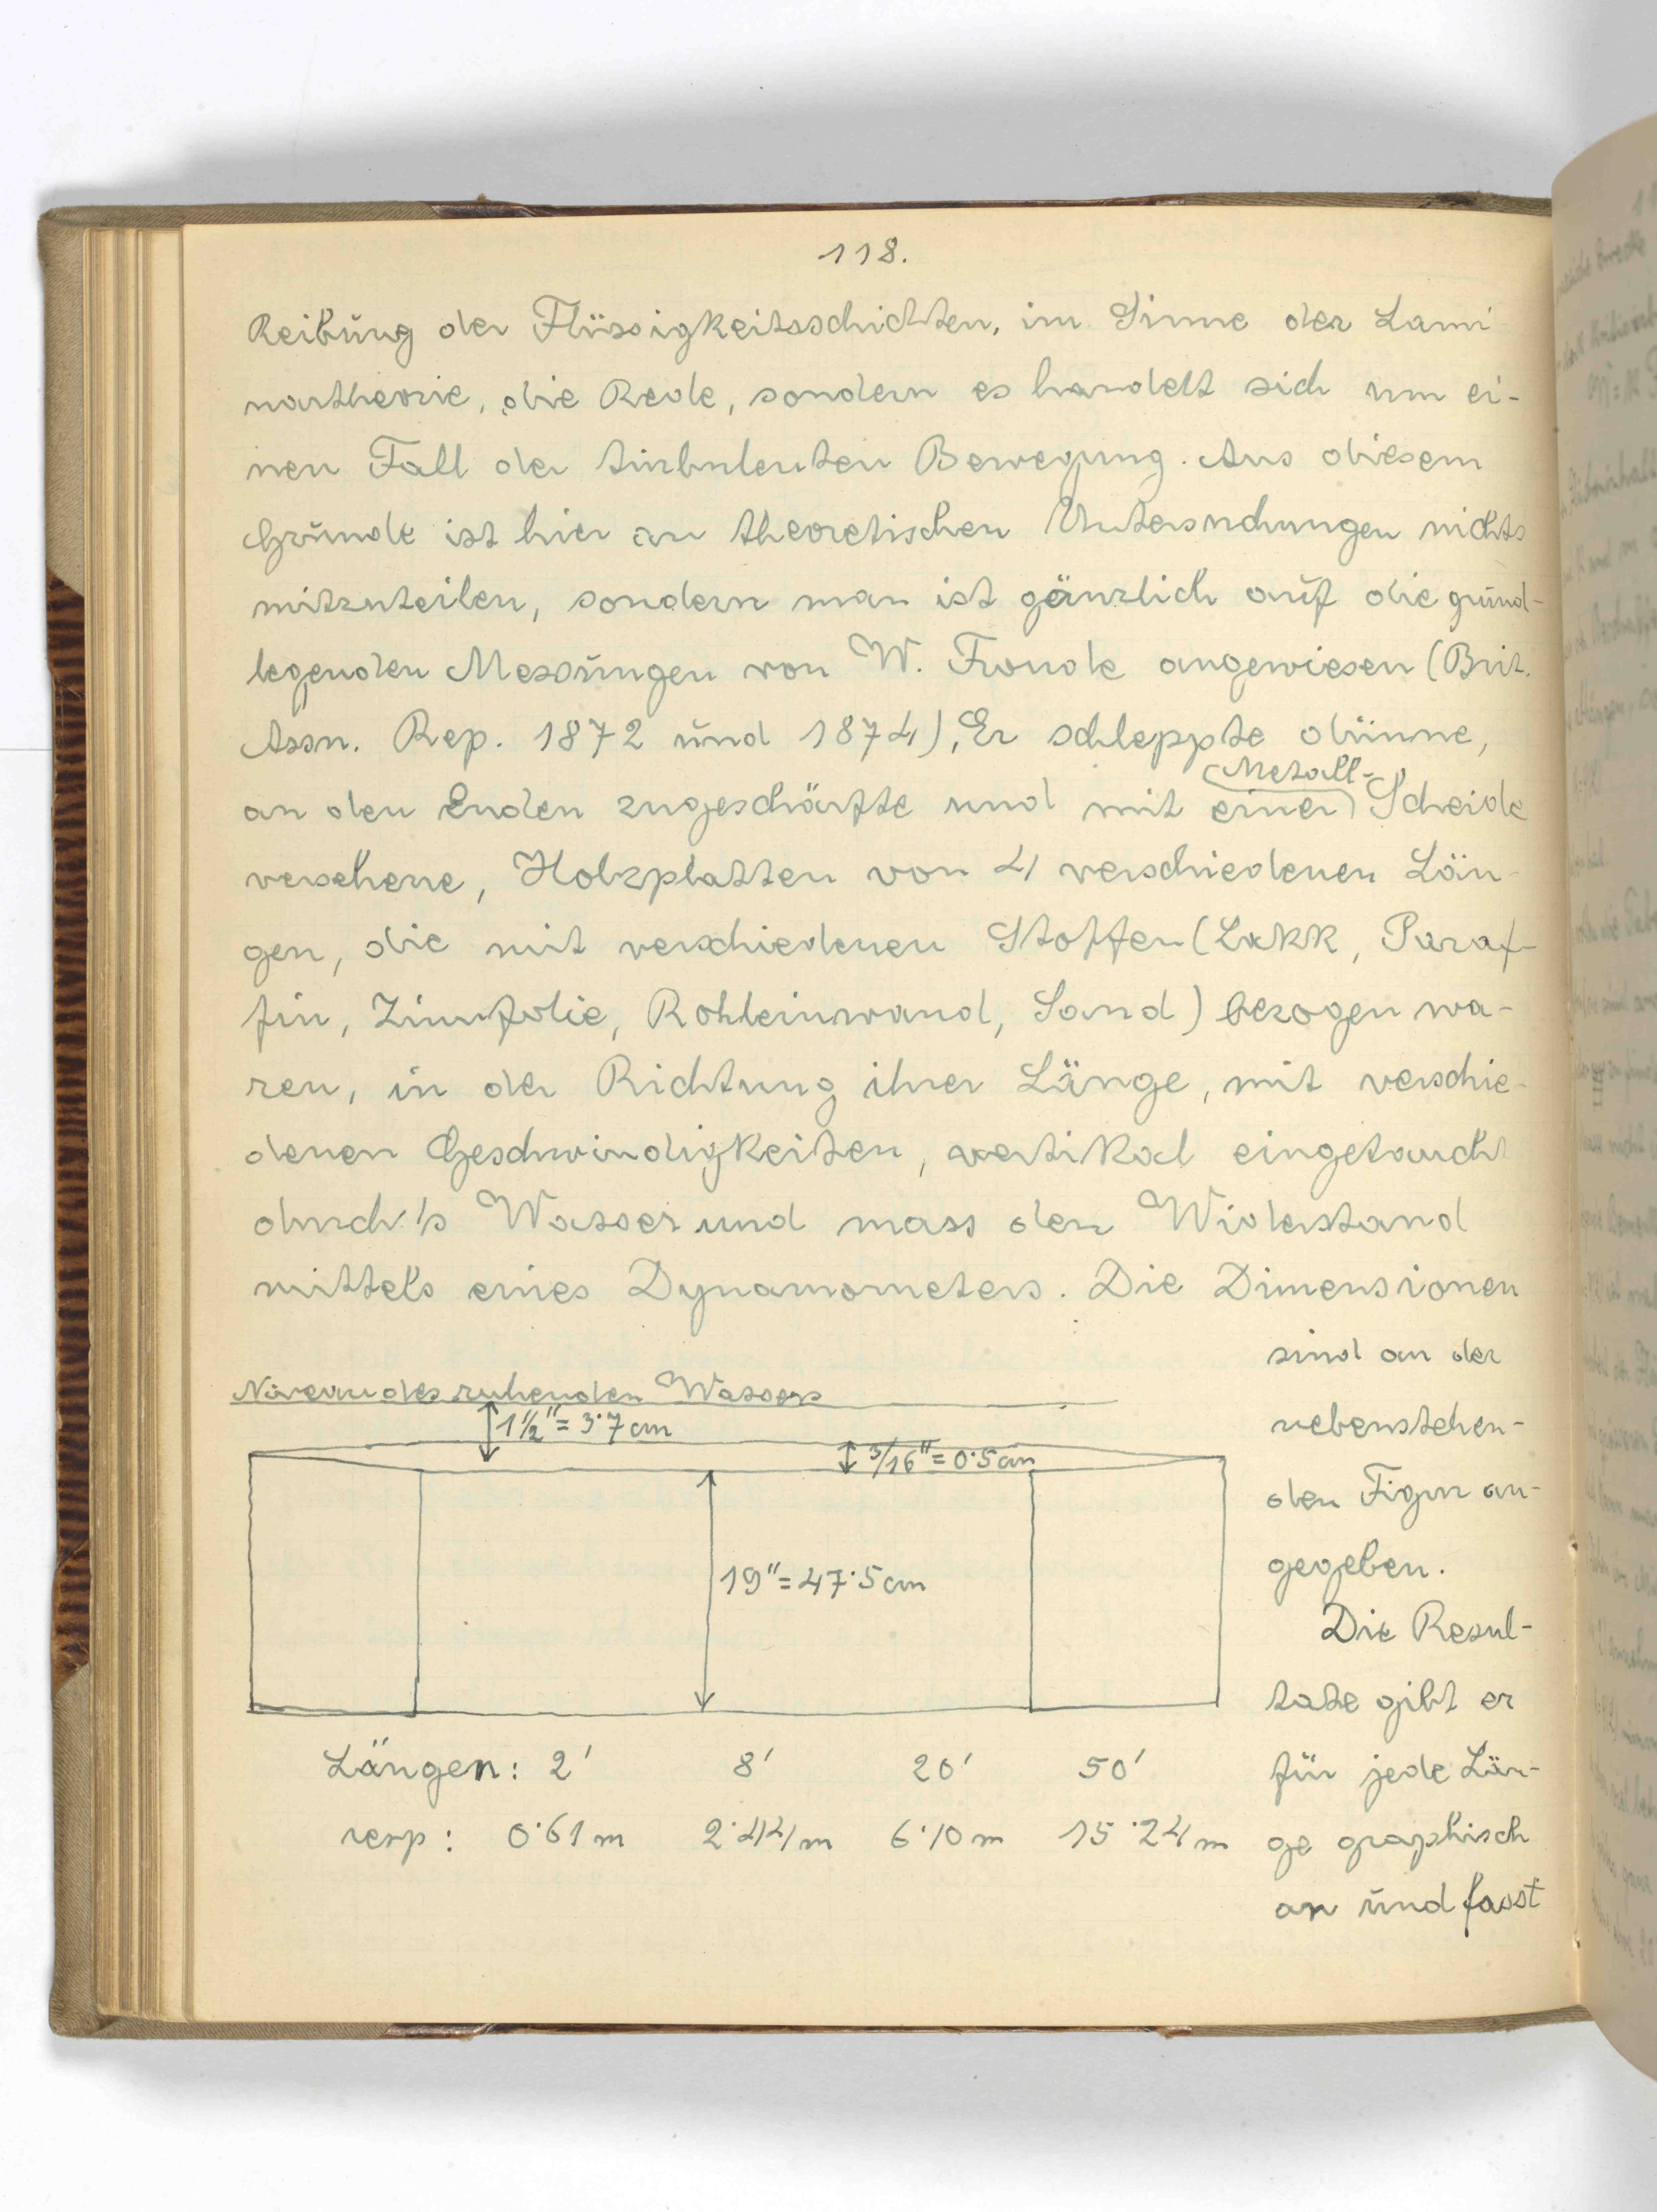 118.
Reibung der Flüssigkeitsschichten, im Sinne der Lami
nartheorie, die Rede, sondern es handelt sich um ei-
nen Fall der turbulenten Bewegung. Aus diesem
Grunde ist hier an theoretischen Untersuchungen nichts
mitzuteilen, sondern man ist gänzlich auf die grund-
legenden Messungen von W. Froude angewiesen (Brit.
Assn. Rep. 1872 und 1874). Er schleppte dünne,
an den Enden zugeschärfte und mit einer Metall-Scheide
versehene, Holzplatten von 4 verschiedenen Län-
gen, die mit verschiedenen Stoffen (Lakk, Paraf-
fin, Zinnfolie, Rohleinwand, Sand) bezogen wa-
ren, in der Richtung ihrer Länge, mit verschie-
denen Geschwindigkeiten, vertikal eingetaucht
durch's Wasser und mass den Widerstand
mittels eines Dynamometers. Die Dimensionen
sind an der
nebenstehen-
den Figur an-
gegeben.
Die Resul-
tate gibt er
für jede Län-
ge graphisch
an und fasst
Niveau des ruhenden Wassers
1½" = 3·7 cm
3/16" = 0·5 cm
19" = 47·5 cm
Längen: 2' 8' 20' 50'
resp: 0·61 m 2·44 m 6·10 m 15·24 m